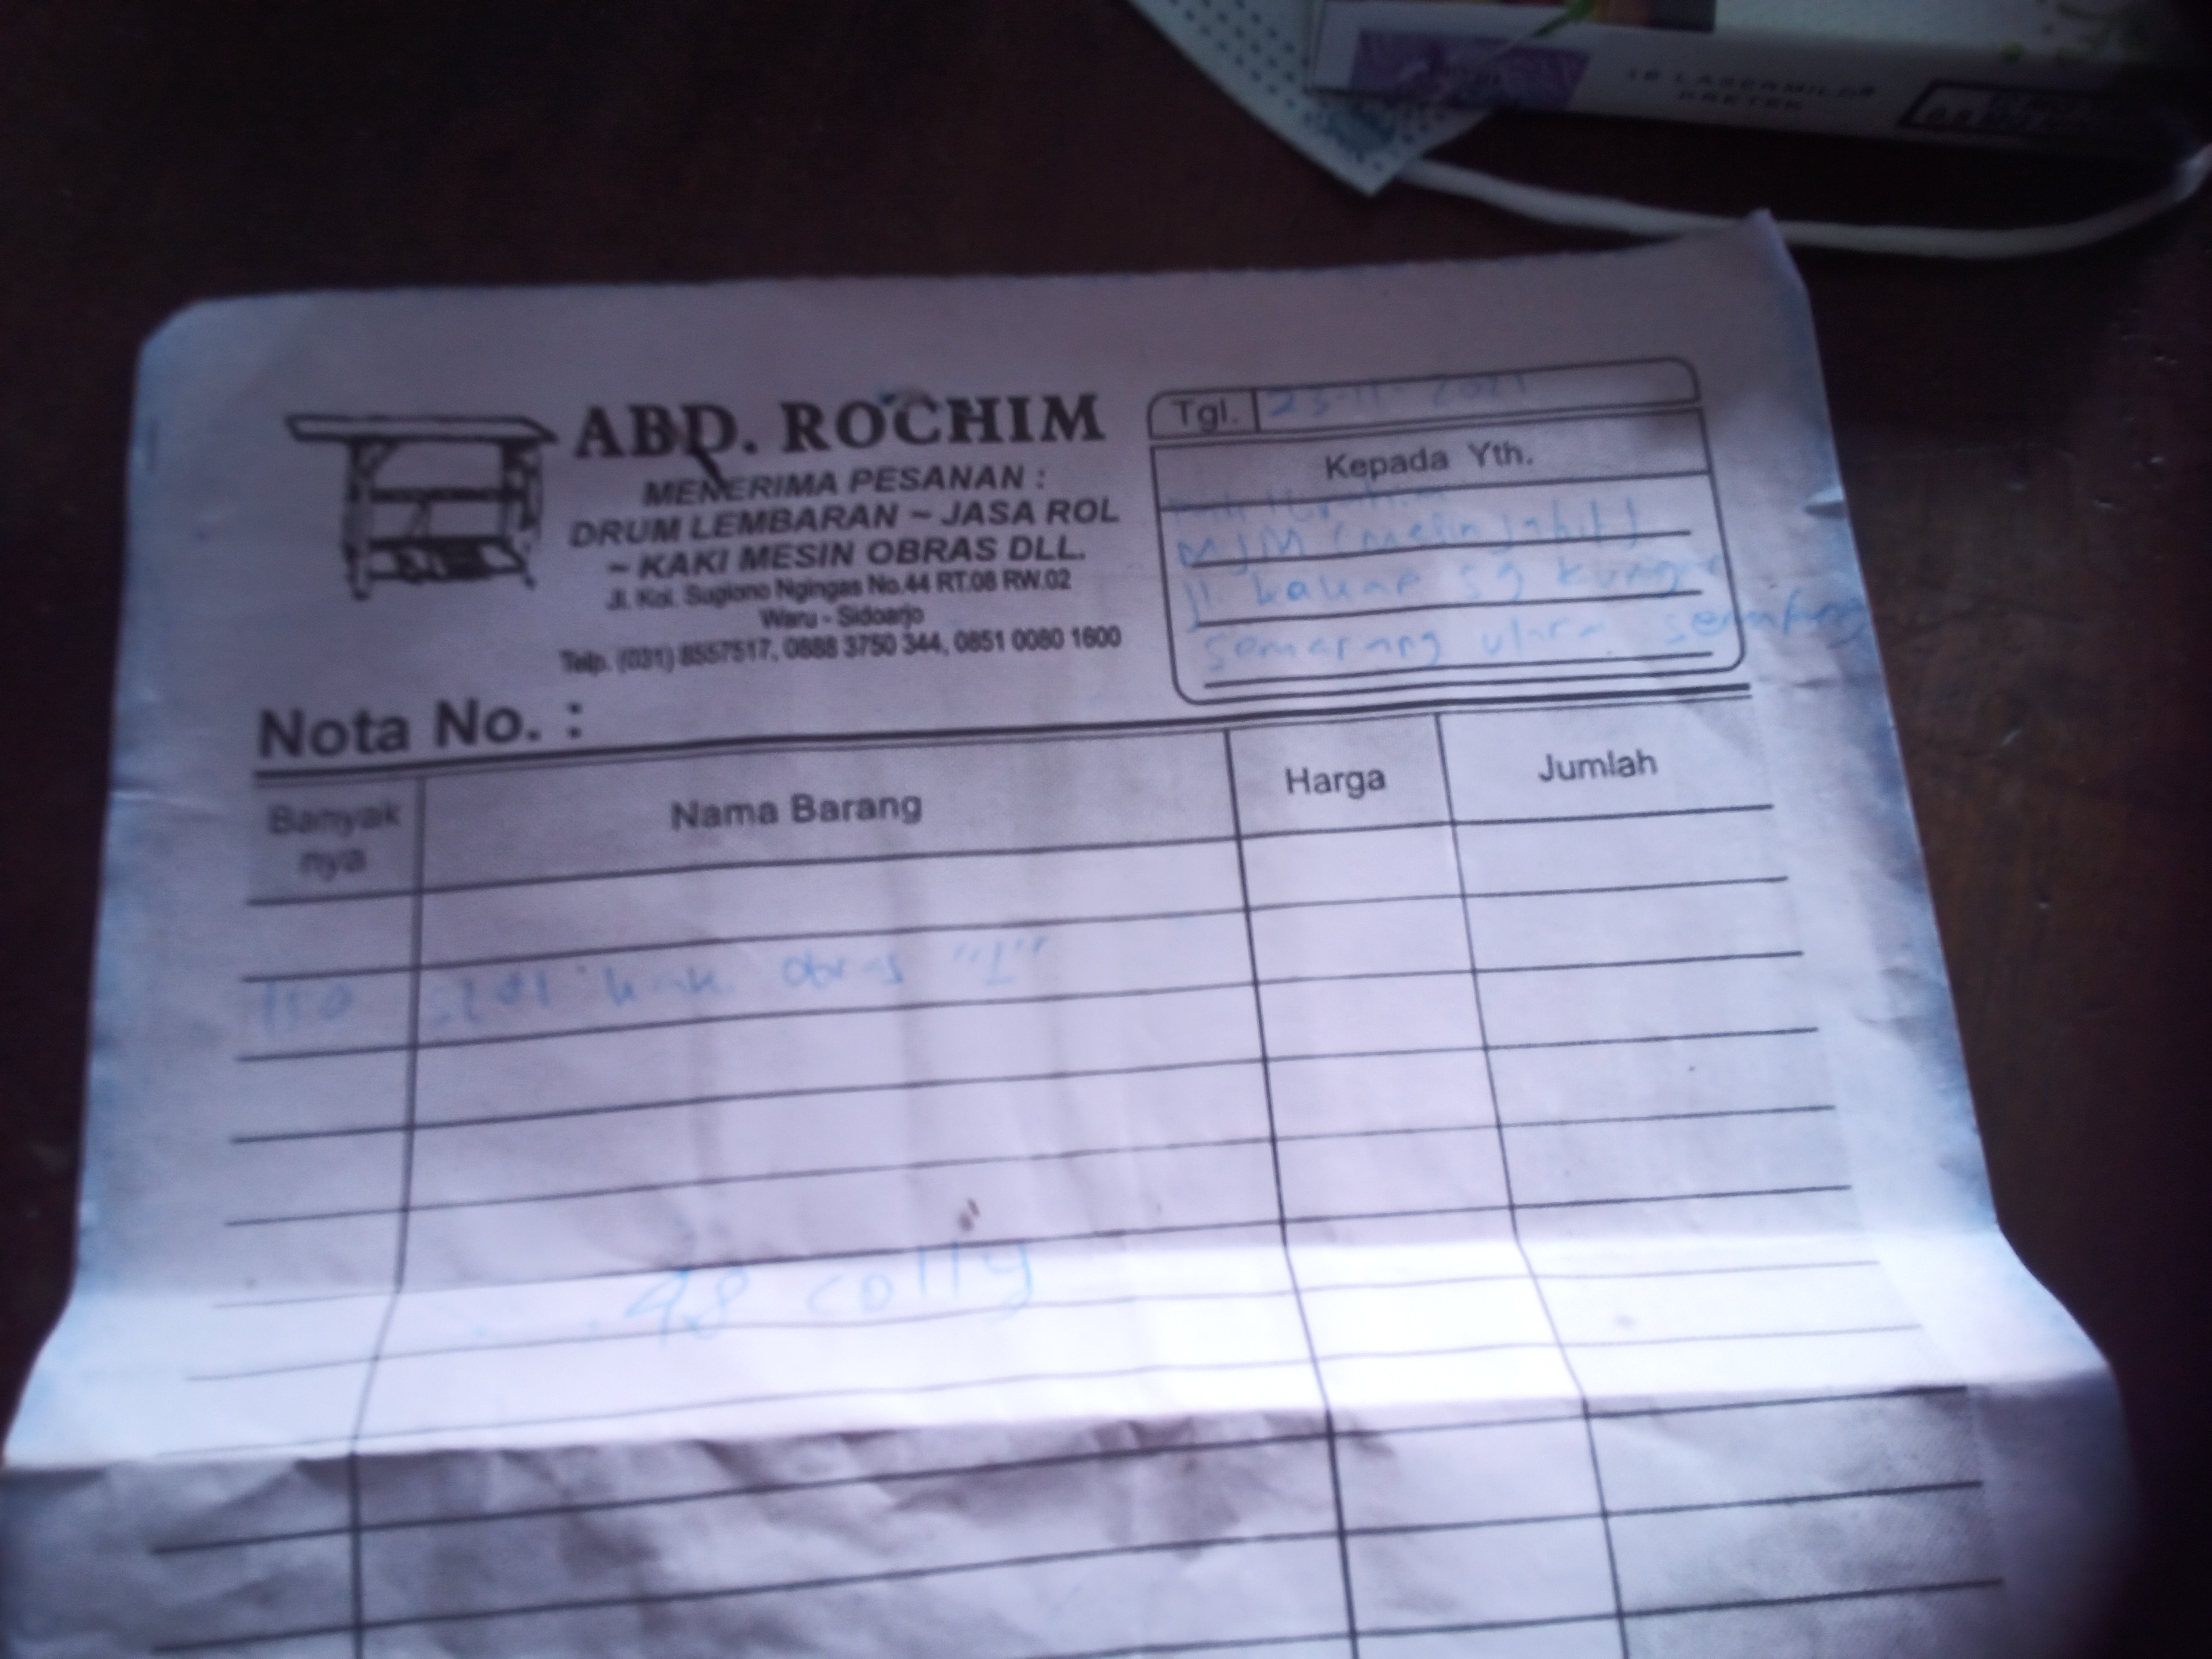 16 LASERMILD
KRETEK
ABD. ROCHIM
MENERIMA PESANAN :
DRUM LEMBARAN ~ JASA ROL
~ KAKI MESIN OBRAS DLL.
Jl. Kol. Sugiono Ngingas No.44 RT.08 RW.02
Waru - Sidoarjo
Telp. (031) 8557517, 0888 3750 344, 0851 0080 1600
Tgl. 23-11-2021
Kepada Yth.
MJM (mesin jahit)
Jl. kakap
semarang utara semarang
Nota No. :
Banyak nya Nama Barang Harga Jumlah
110 set kaki obras "I"
98 colly